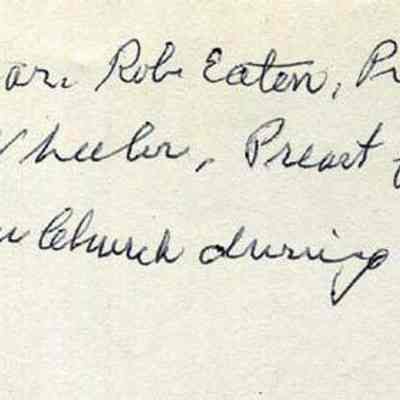 Rob. Eaton, Pr
Wheeler, Preast f
Church during